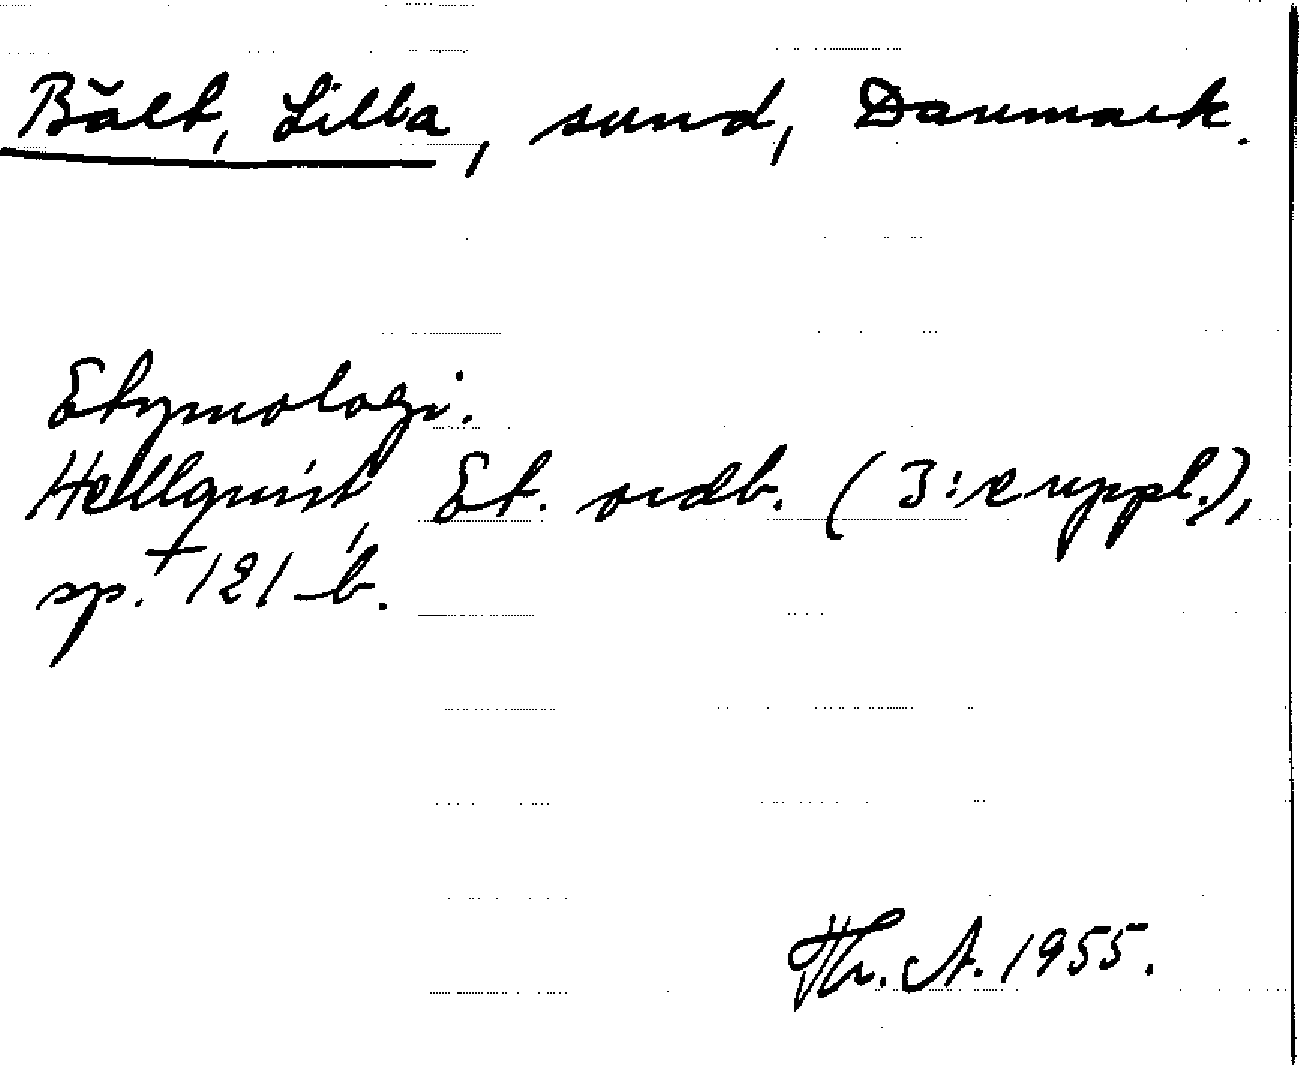 Bält, Lilla, sund, Danmark.
Etymologi.
Hellquist, Et. ordb. (3:e uppl.),
sp. 121 b.
Th. A. 1955.